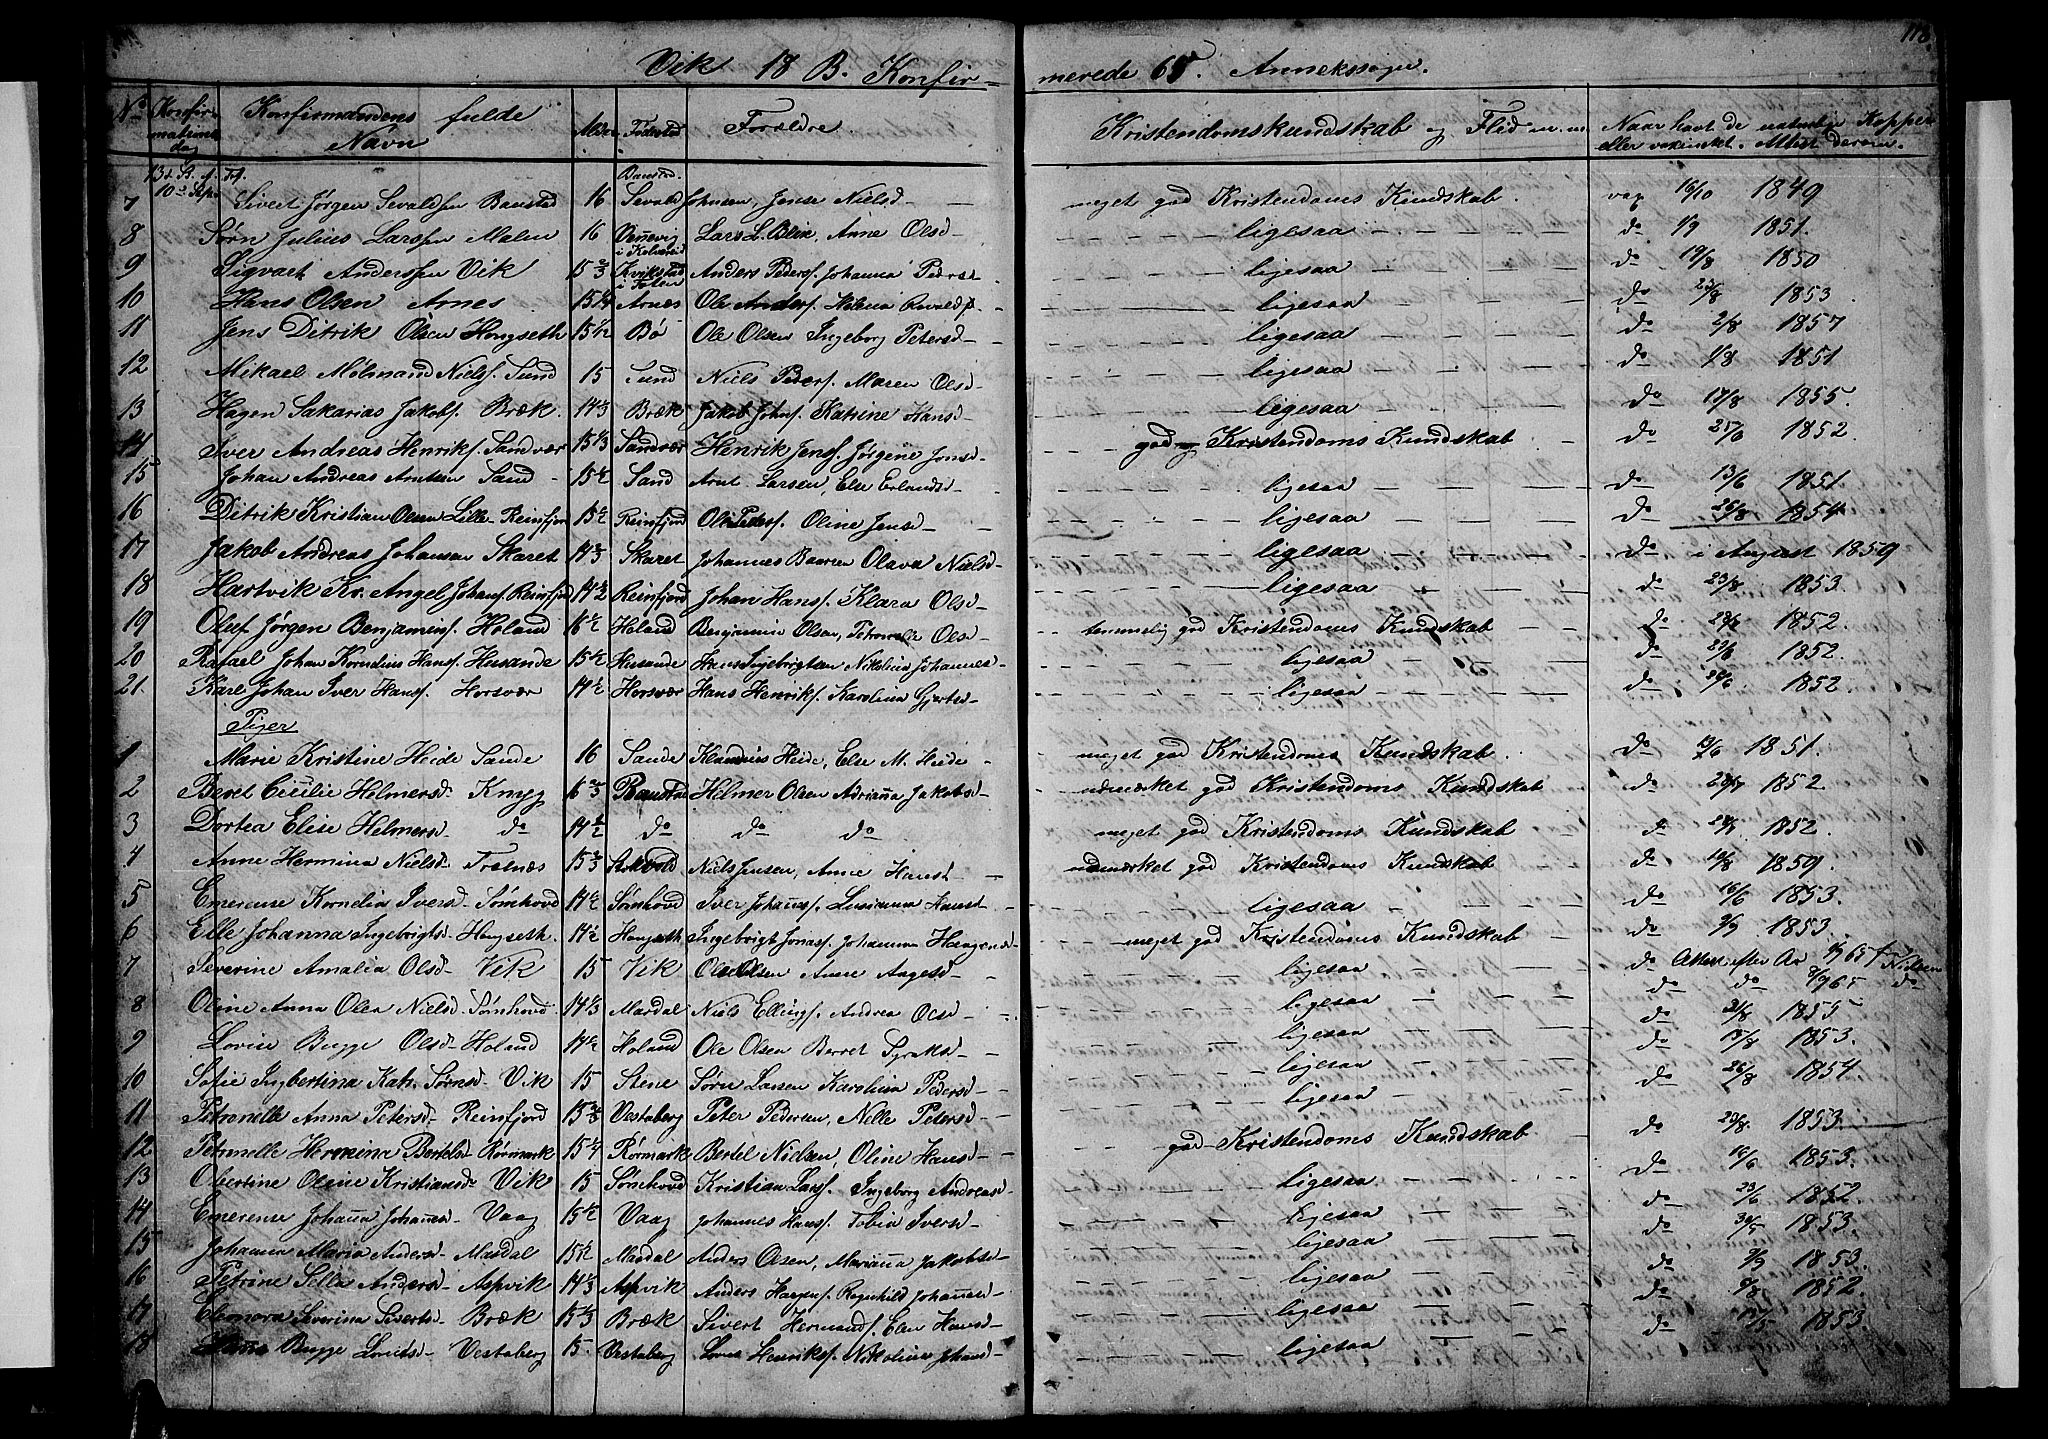 118
Vik 18 B. Konfir- merede 65. Annekssogn.
No Konfir- mations dag Konfirmandens fulde Navn Alder Fødested Forældre Kristendomskundskab og Flid m.m Naar havt de naturlige Kopper eller vakcineret. Attest derom.
13 S. e. Tr. 10de Septr
7 Sivert Jørgen Sevaldsen Baustad 16 Baustad. Sevald Johnsen, Jense Nielsd - meget god Kristendoms Kundskab. vax 16/10 1849
8 Sørn Julius Larssen Malen 16 Vennevig Lars L. Blix, Anne Olsd - ligesaa do 1/9 1851.
9 Sigvart Anderssen Vik 15 2/3 Kvikstad Anders Peders. Johanna Pederst - ligesaa do 19/8 1850
10 Hans Olsen Arnes 15 1/4 Arnæs Ole Anders. Helena - ligesaa do 23/8 1853.
11 Jens Ditrik Olsen Hongseth 15 1/2 Bø Ole Olsen Ingeborg Petersd - ligesaa do 2/8 1857
12 Mikael Mølmand Niels. Sund 15 Sund Niels Peders. Maren Olsd - ligesaa do 1/8 1851
13 Hagen Sakarias Jakobs. Bræk. 14 2/3 Bræk Jakob Johns. Katrine Hansd - ligesaa do 17/8 1855.
14 Iver Andreas Henriks. Sandvær 15 1/3 Sandvær Henrik Jens. Jørgine Jonsd - god Kristendoms Kundskab do 25/6 1852.
15 Johan Andreas Arntsen Sand 15 1/2 Sand Arnt Larsen, Else Erlandsd - ligesaa do 13/6 1851.
16 Ditrik Kristian Olsen Lille-Reinfjord 15 1/2 Reinfjord Ole Peders. Oline Jensd - ligesaa do 26/8 1854
17 Jakob Andreas Johansen Skaret 14 2/3 Skaret Johannes Olava Nielsd - ligesaa do i August 1859
18 Hartvik Kr. Angel Johans. Reinfjord 14 1/2 Reinfjord Johan Hans. Klara Olsd - ligesaa do 23/8 1853.
19 Oluf Jørgen Benjamins. Holand 16 1/2 Holand Benjamin Olsen, Petronelle Olsd - temmelig god Kristendoms Kundskab do 23/6 1852.
20 Rafael Johan Kornelius Hans. Husande 15 1/2 Husande Hans Ingebrigtsen Nikolina Johannesd - ligesaa do 23/8 1852.
21. Karl Johan Iver Hans. Horsvær 14 1/2 Horsvær Hans Henriks. Karolina Gjertsd - ligesaa do 26/6 1852.
Piger
1 Marie Kristine Heide Sande 16 Sande Klaudius Heide, Else M. Heide - meget god Kristendoms Kundskab. do 13/6 1851.
2 Beret Cicilie Helmersd - Knyg 16 2/3 Baustad Helmer Olsen Adrianna Jakobsd - udmærket god Kristendoms Kundskab do 1852.
3 Dortea Elise Helmersd - do 14 1/2 do do do meget god Kristendoms Kundskab do 1852.
4 Anne Hermina Nielsd - Trælnæs 15 2/3 Niels Jensen, Anne Hansd - udmærket god Kristendoms Kundskab do 19/8 1859.
5 Emerense Kornelia Iversd - Sømhovd 14 1/2 Sømhovd Iver Johanns. Lusianna Hansd - ligesaa do 16/6 1853.
6 Elle Johanna Ingebrigtsd - Hongseth. 14 1/2 Hongseth Ingebrigt Jonas. Johanna Haagensd - meget god Kristendoms Kundskab do 2/9 1853.
7 Severine Amalia Olsd - Vik 15 Vik Ole Olsen Anne Aagesd - ligesaa do Attest efter Ar 65 fra Nielsen
8 Oline Anna Olea Nielsd - Sømhovd. 14 1/3 Mardal Niels Ellings. Andrea Olsd - ligesaa do do 65 do
9 Lovise Bugge Olsd - Holand 14 1/2 Holand Ole Olsen Berret Syraksd - ligesaa do 21/8 1855
10 Sofie Ingbertina Kath. Sørnsd - Vik 15 Stene Sørn Larsen Karolina Pedersd - ligesaa do 17/8 1853.
11 Petronelle Anna Petersd - Reinfjord 15 2/3 Vestaberg Peter Pedersen, Nelle Petersd - ligesaa do 26/8 1854.
12 Petronelle Hermina Bertelsd Rørmark 15 1/4 Rørmark Bertel Nielsen, Oline Hansd - god Kristendoms Kundskab do 23/8. 1853.
13 Obertine Oline Kristiansd - Vik 15 Sømhovd Kristian Lars. Ingeborg Andreasd - ligesaa do 16/6 1853.
14 Emerense Johanna Johannesd - Vaag 15 1/2 Vaag Johannes Hans. Tobia Iversd - ligesaa do 23/6 1852
15 Johanna Maria Andersd - Mardal 15 1/2 Mardal Anders Olsen, Marianna Jakobsd - ligesaa do 30/5 1853.
16 Petrine Sella Andersd - Aspvik 14 1/3 Aspvik Anders Hagens. Ragnhild Johannesd - ligesaa do 2/9 1853.
17 Elenora Severina Sivertsd - Bræk 15 1/3 Bræk Sivert Hermands. Elen Hansd - ligesaa do 5/8. 1852.
18 Bugge Lovisd - Vestaberg 15. Vestaberg Henriks. Nikoline Johansd - ligesaa do 17/5 1853.